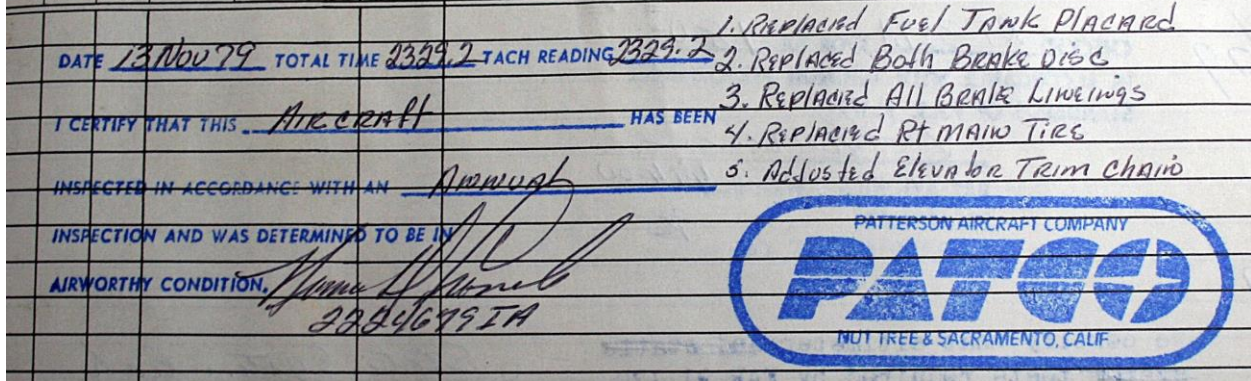 DATE 13 Nov 79 TOTAL TIME 2329.2 TACH READING 2329.2
I CERTIFY THAT THIS Aircraft HAS BEEN
INSPECTED IN ACCORDANCE WITH AN Annual
INSPECTION AND WAS DETERMINED TO BE IN
AIRWORTHY CONDITION.
2224679 IA
1. Replaced Fuel Tank Placard
2. Replaced Both Brake Disc
3. Replaced All Brake Lineings
4. Replaced Rt Main Tire
5. Addusted Elevator Trim Chain
PATTERSON AIRCRAFT COMPANY
PATCO
NUT TREE & SACRAMENTO, CALIF.